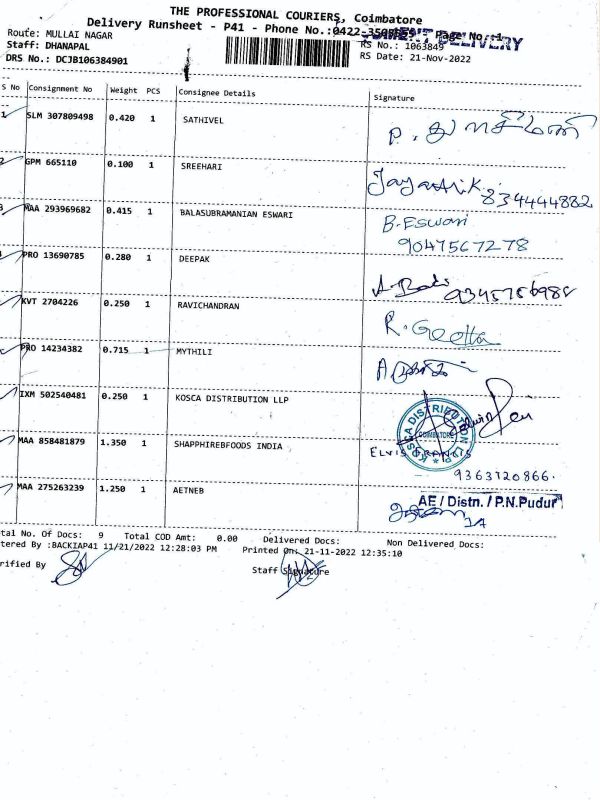 THE PROFESSIONAL COURIERS, Coimbatore
Delivery Runsheet - P41 - Phone No.:0422- Page No.:1
DELIVERY
Route: MULLAI NAGAR
RS No.: 1063849
Staff: DHANAPAL
RS Date: 21-Nov-2022
DRS No.: DCJB106384901
S No Consignment No Weight PCS Consignee Details Signature
SLM 307809498 0.420 1 SATHIVEL P.
GPM 665110 0.100 1 SREEHARI
834444882
MAA 293969682 0.415 1 BALASUBRAMANIAN ESWARI B.Eswari
9047567278
PRO 13690785 0.280 1 DEEPAK
KVT 2704226 0.250 1 RAVICHANDRAN R. Geetha
PRO 14234382 0.715 1 MYTHILI
IXM 502540481 0.250 1 KOSCA DISTRIBUTION LLP
KOSCA DISTRIBUTION
COIMBATORE
MAA 858481879 1.350 1 SHAPPHIREBFOODS INDIA ELVIS FRANCIS
9363720866.
MAA 275263239 1.250 1 AETNEB AE / Distn. / P.N.Pudur
tal No. Of Docs: 9 Total COD Amt: 0.00 Delivered Docs: Non Delivered Docs:
tered By :BACKIAP41 11/21/2022 12:28:03 PM Printed On: 21-11-2022 12:35:10
rified By Staff Signature